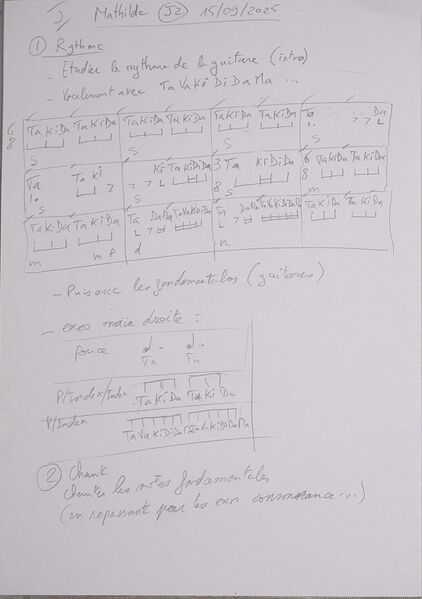 Mathilde (J2) 15/09/2025
① Rythme
- Etudier le rythme de la guitare (intro)
- Vocalement avec TaVaKiDiDaMa ...
6 TaKiDa TaKiDa TaKiDa TaKiDa TaKiDa TaKiDa Ta Da
8 S S S
Ta TaKi Ki TaKiDiDa 3 Ta KiDiDa 6 TaKiDa TaKiDa
8 8
S S m
TaKiDa TaKiDa Ta TaVaKiDiDa Ta TaVaKiDiDa TaKiDa TaKiDa
m m d n
- Puis avec les fondamentales (guitares)
- exos main droite :
Pouce Ta Ta
P/index/index TaKiDa TaKiDa
P/index TaVaKiDiDaMa TaVaKiDiDaMa
② Chant
Chanter les notes fondamentales
(en repassant par les exos consonance...)